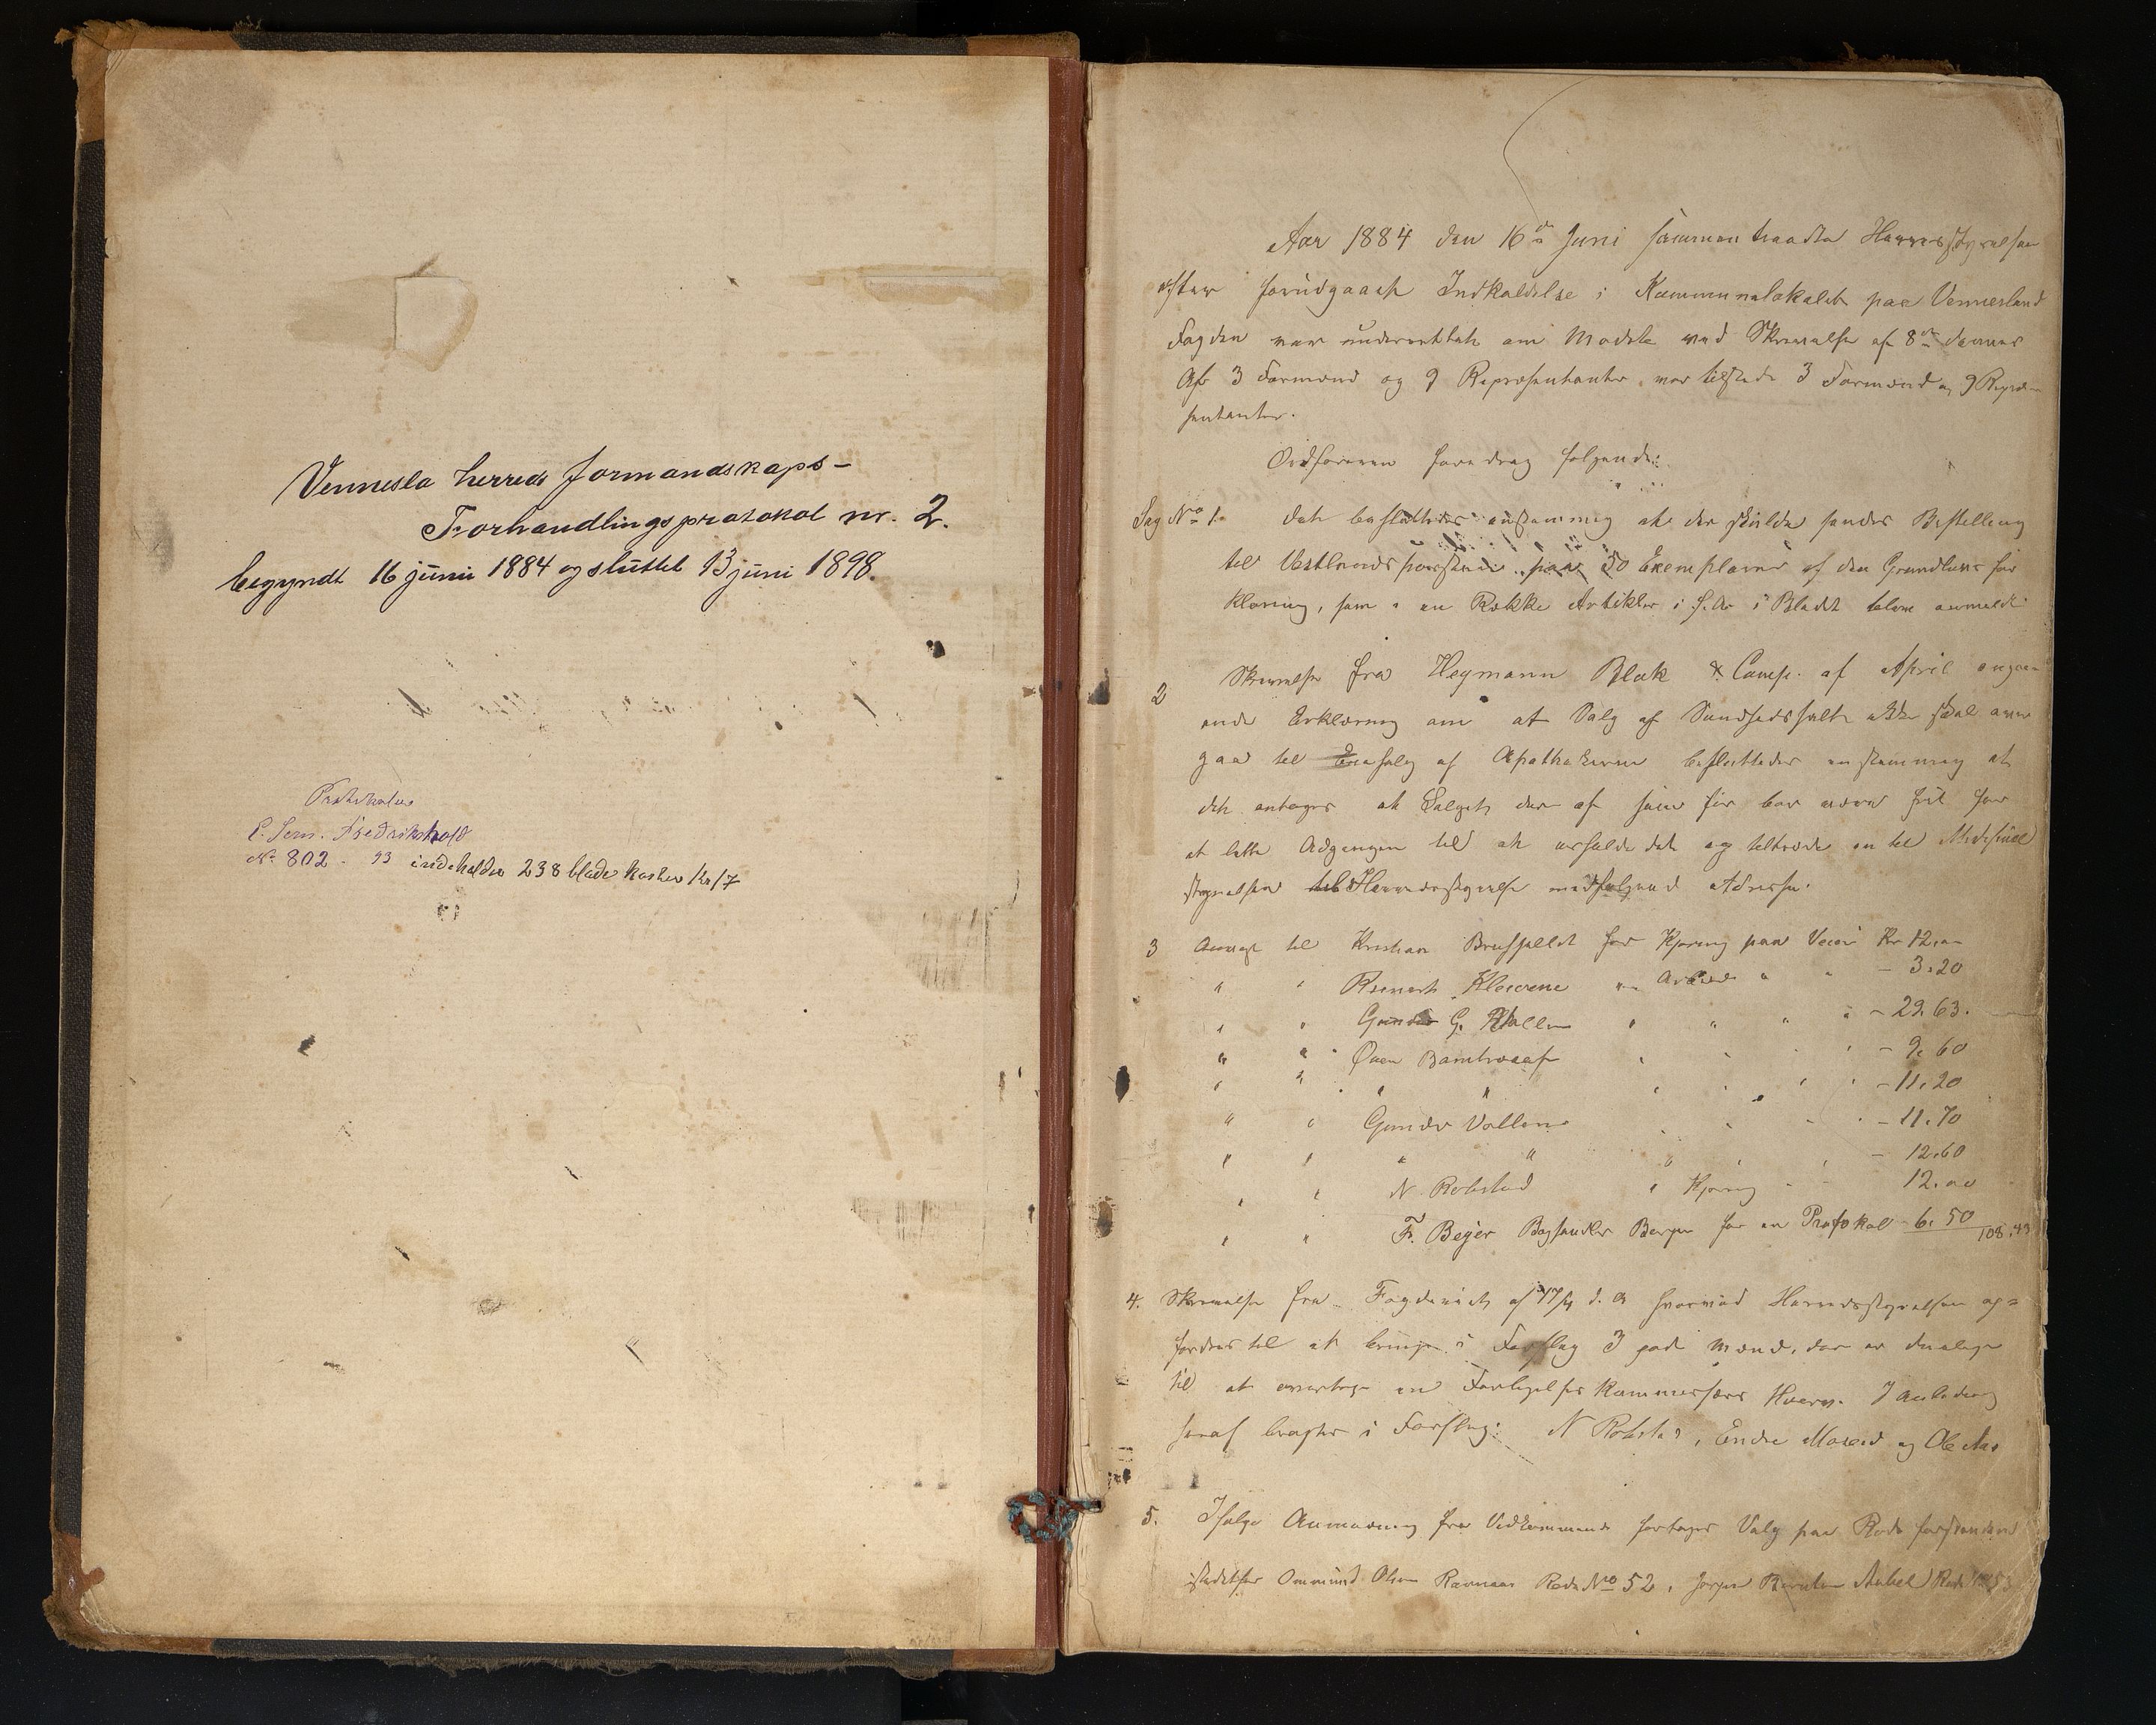 Vennesla herreds formandskaps-
Forhandlingsprotokol nr. 2.
begyndt 16 juni 1884 og sluttet 13 juni 1898.
Protokolen
No 802 - 93 indeholder 238 blade koster Kr 17
Aar 1884 den 16de Juni sammentraadte Herredsstyrelsen
efter forudgaaet Indkaldelse i Kommunelokalet paa Vennesland
Fogden var underrettet om Modet ved Skrivelse af 8de dennes
Af 3 Formænd og 9 Repræsentanter var tilstede 3 Formænd og 9 Repræ-
sentanter.
Ordføreren foredrog følgende:
Sag No 1. Det besluttedes enstemmig at der skulde sendes Bestilling
til Vestlandsposten paa 50 Exemplarer af den Grundlovsfor
klaring, som i en Række Artikler i f. A. i Bladet blev anmeldt
2 Skrivelse fra Heymann Bloch & Comp. af April angaa-
ende Erklæring om at Salg af Sundhedssalt ikke skal over
gaa til Enesalg af Apothekerne besluttedes enstemmig at
det antages at Salget der af som før bør være frit for
at lette Adgangen til at erholde det og tiltræde en til Medicinal
styrelsen til Herredsstyrelse medfølgend Adresse.
3 Anvist til Kristian Drivfjeldet for Kjøring paa Veien Kr 12,00
" " Klevene " Arbeide " " - 3.20
" " Gunder G. Vollen " " " " - 29.63.
" " Oven " " " " - 9.60
" " " " " " " " - 11.20
" " Gunder Vollen " " " " - 11.70
" " " " " " " - 12.60
" " N. Robstad " Kjøring " " 12.00
" " F. Beyer Boghandler Bergen for en Protokol - 6.50 108.43
4. Skrivelse fra Fogderiet af 17/4 d. A hvorved Herredsstyrelsen op=
fordres til at bringe i Forslag 3 gode Mænd, der er duelige
til at overtage en Forligelseskommissærs Hverv. I Anledning
heraf bragtes i Forslag: N Robstad, Endre Moseid og Ole Aas
5. Ifølge Anmodning fra Vedkommende foretages Valg paa Rodeforstandere
istedetfor Ommund Olsen Ravnaas Rode No 52, Jørgen Berntsen Aubel Rode No 53